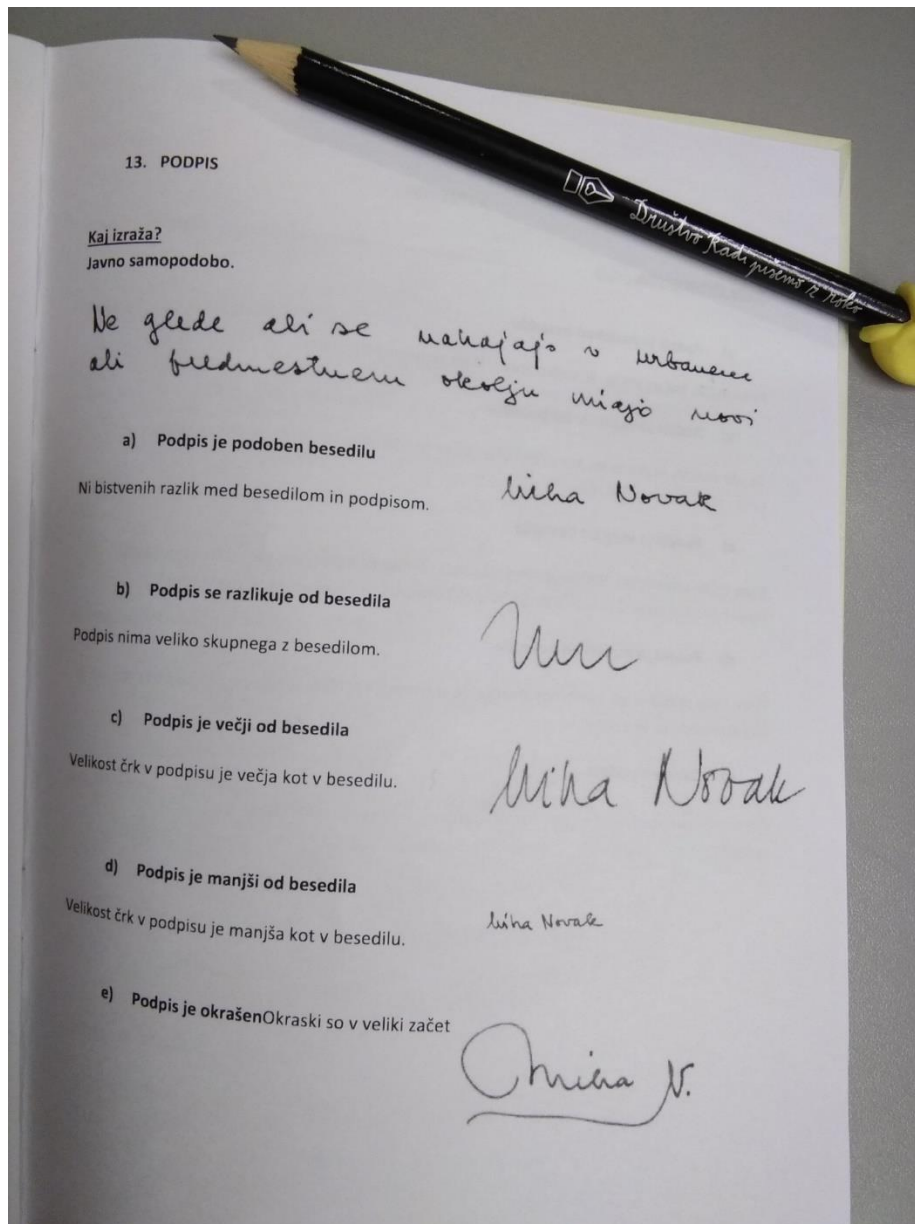 13. PODPIS
Društvo Radi pišemo z roko
Kaj izraža?
Javno samopodobo.
Ne glede ali se nahajajo v urbanem
ali predmestnem okolju imajo novi
a) Podpis je podoben besedilu
Ni bistvenih razlik med besedilom in podpisom.
Miha Novak
b) Podpis se razlikuje od besedila
Podpis nima veliko skupnega z besedilom.
c) Podpis je večji od besedila
Velikost črk v podpisu je večja kot v besedilu.
Miha Novak
d) Podpis je manjši od besedila
Velikost črk v podpisu je manjša kot v besedilu.
Miha Novak
e) Podpis je okrašenOkraski so v veliki začet
Miha N.